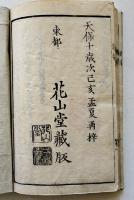 天保十歳次己亥孟夏再㨨
東都
花山堂藏版